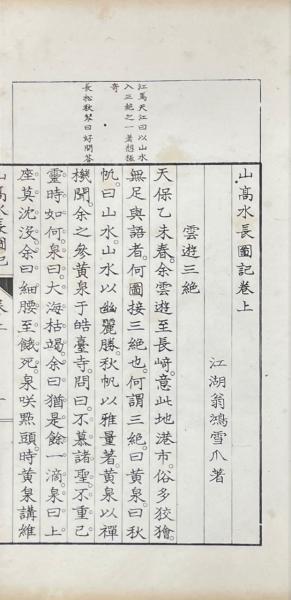 江馬天江曰以山水
入三絶之一着想極
奇
長松秋琴曰好問答
山高水長圖記卷上
江湖翁鴻雪爪著
雲遊三絶
天保乙未春。余雲遊至長崎。意此地港市。俗多狡獪。
無足與語者。何圖接三絶也。何謂三絶。曰黄泉。曰秋
帆。曰山水。山水以幽麗勝。秋帆以雅量著。黄泉以禪
機聞。余之參黄泉于皓臺寺。問曰。不慕諸聖。不重己
靈時如何。泉曰。大海枯竭。余曰。猶是餘一滴。泉曰。上
座莫沈没。余曰。細腰至餓死。泉咲點頭。時黄泉講維
山高水長圖記 卷上